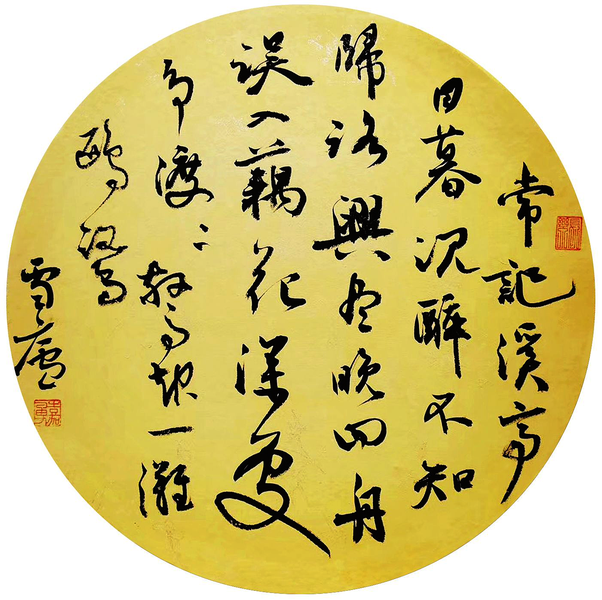 常記溪亭
日暮沉醉不知
歸路興尽晚回舟
誤入藕花深處
争渡〻〻驚起一灘
鷗鷺
雪廬